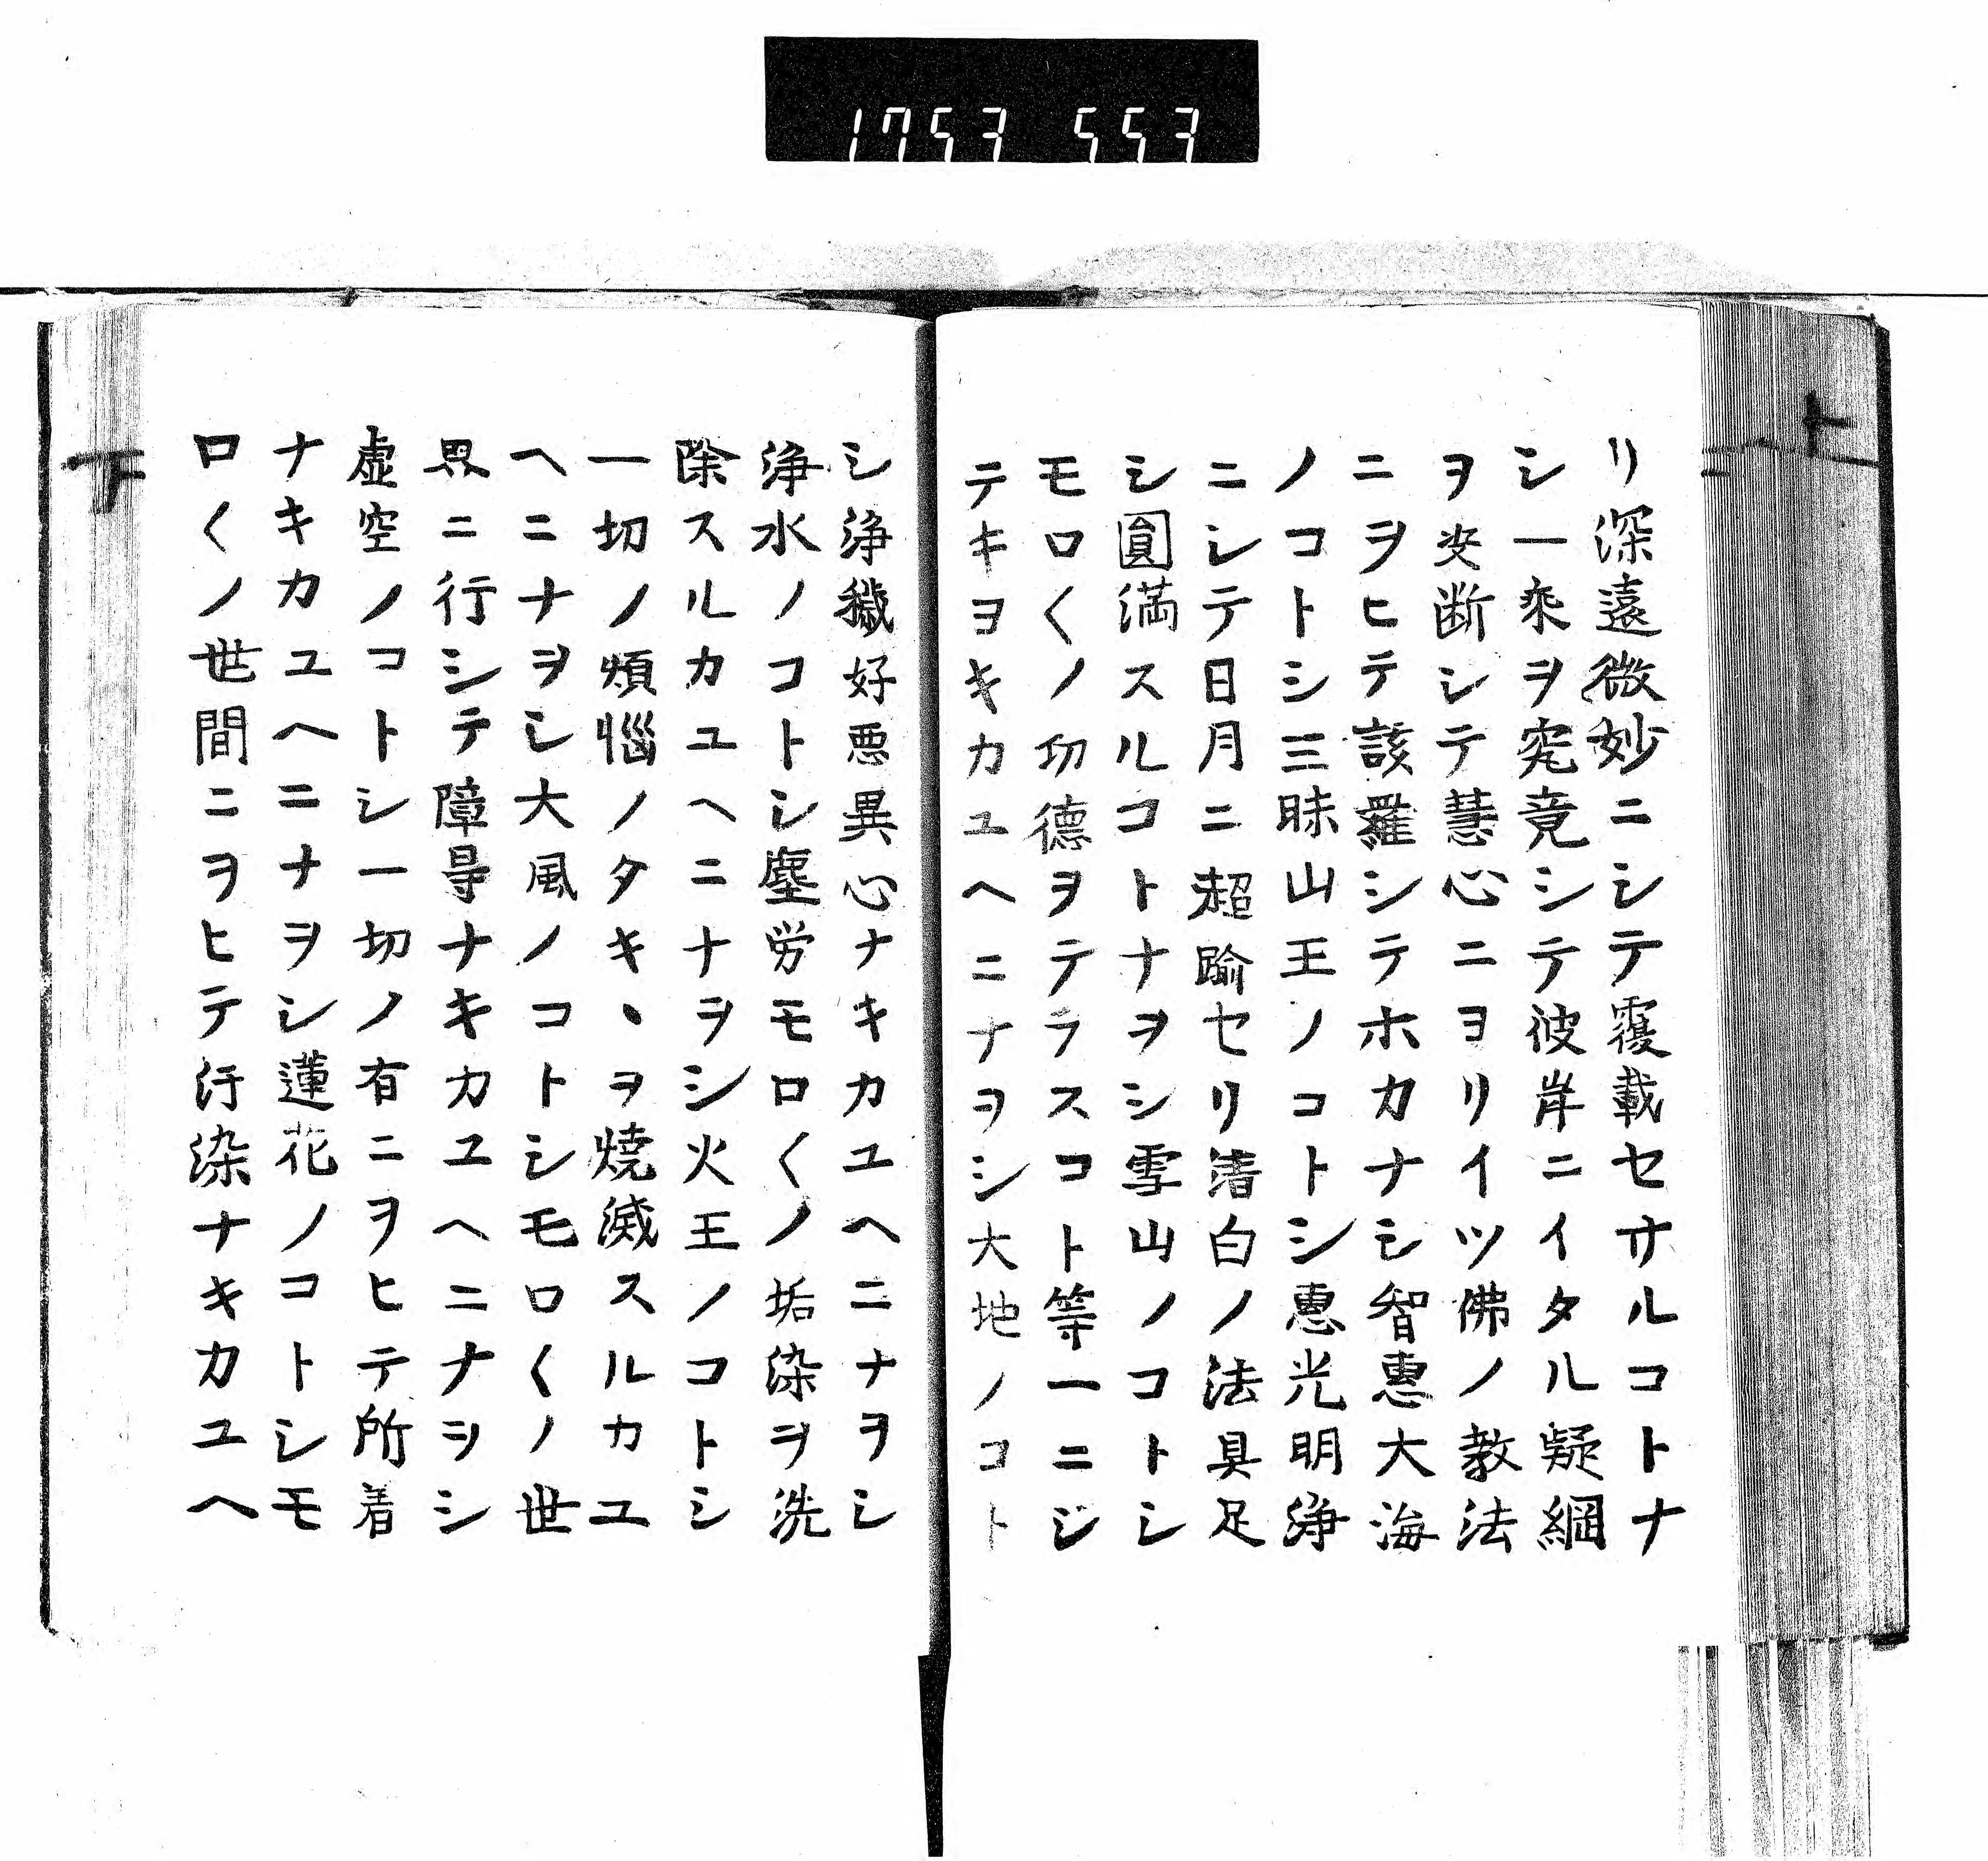 1753 553
リ深遠微妙ニシテ覆載セサルコトナ
シ一乘ヲ究竟シテ彼岸ニイタル疑綱
ヲ決断シテ慧心ニヨリイツ佛ノ教法
ニヲヒテ該羅シテホカナシ智惠大海
ノコトシ三昧山王ノコトシ惠光明浄
ニシテ日月ニ超踰セリ清白ノ法具足
シ圓満スルコトナヲシ雪山ノコトシ
モロ〱ノ功德ヲテラスコト等一ニシ
テキヨキカユヘニナヲシ大地ノコト
シ浄穢好悪異心ナキカユヘニナヲシ
浄水ノコトシ塵労モロ〱ノ垢染ヲ洗
除スルカユヘニナヲシ火王ノコトシ
一切ノ煩惱ノタキヽヲ焼滅スルカユ
ヘニナヲシ大風ノコトシモロ〱ノ世
界ニ行シテ障㝵ナキカユヘニナヲシ
虚空ノコトシ一切ノ有ニヲヒテ所着
ナキカユヘニナヲシ蓮花ノコトシモ
ロ〱ノ世間ニヲヒテ汙染ナキカユヘ